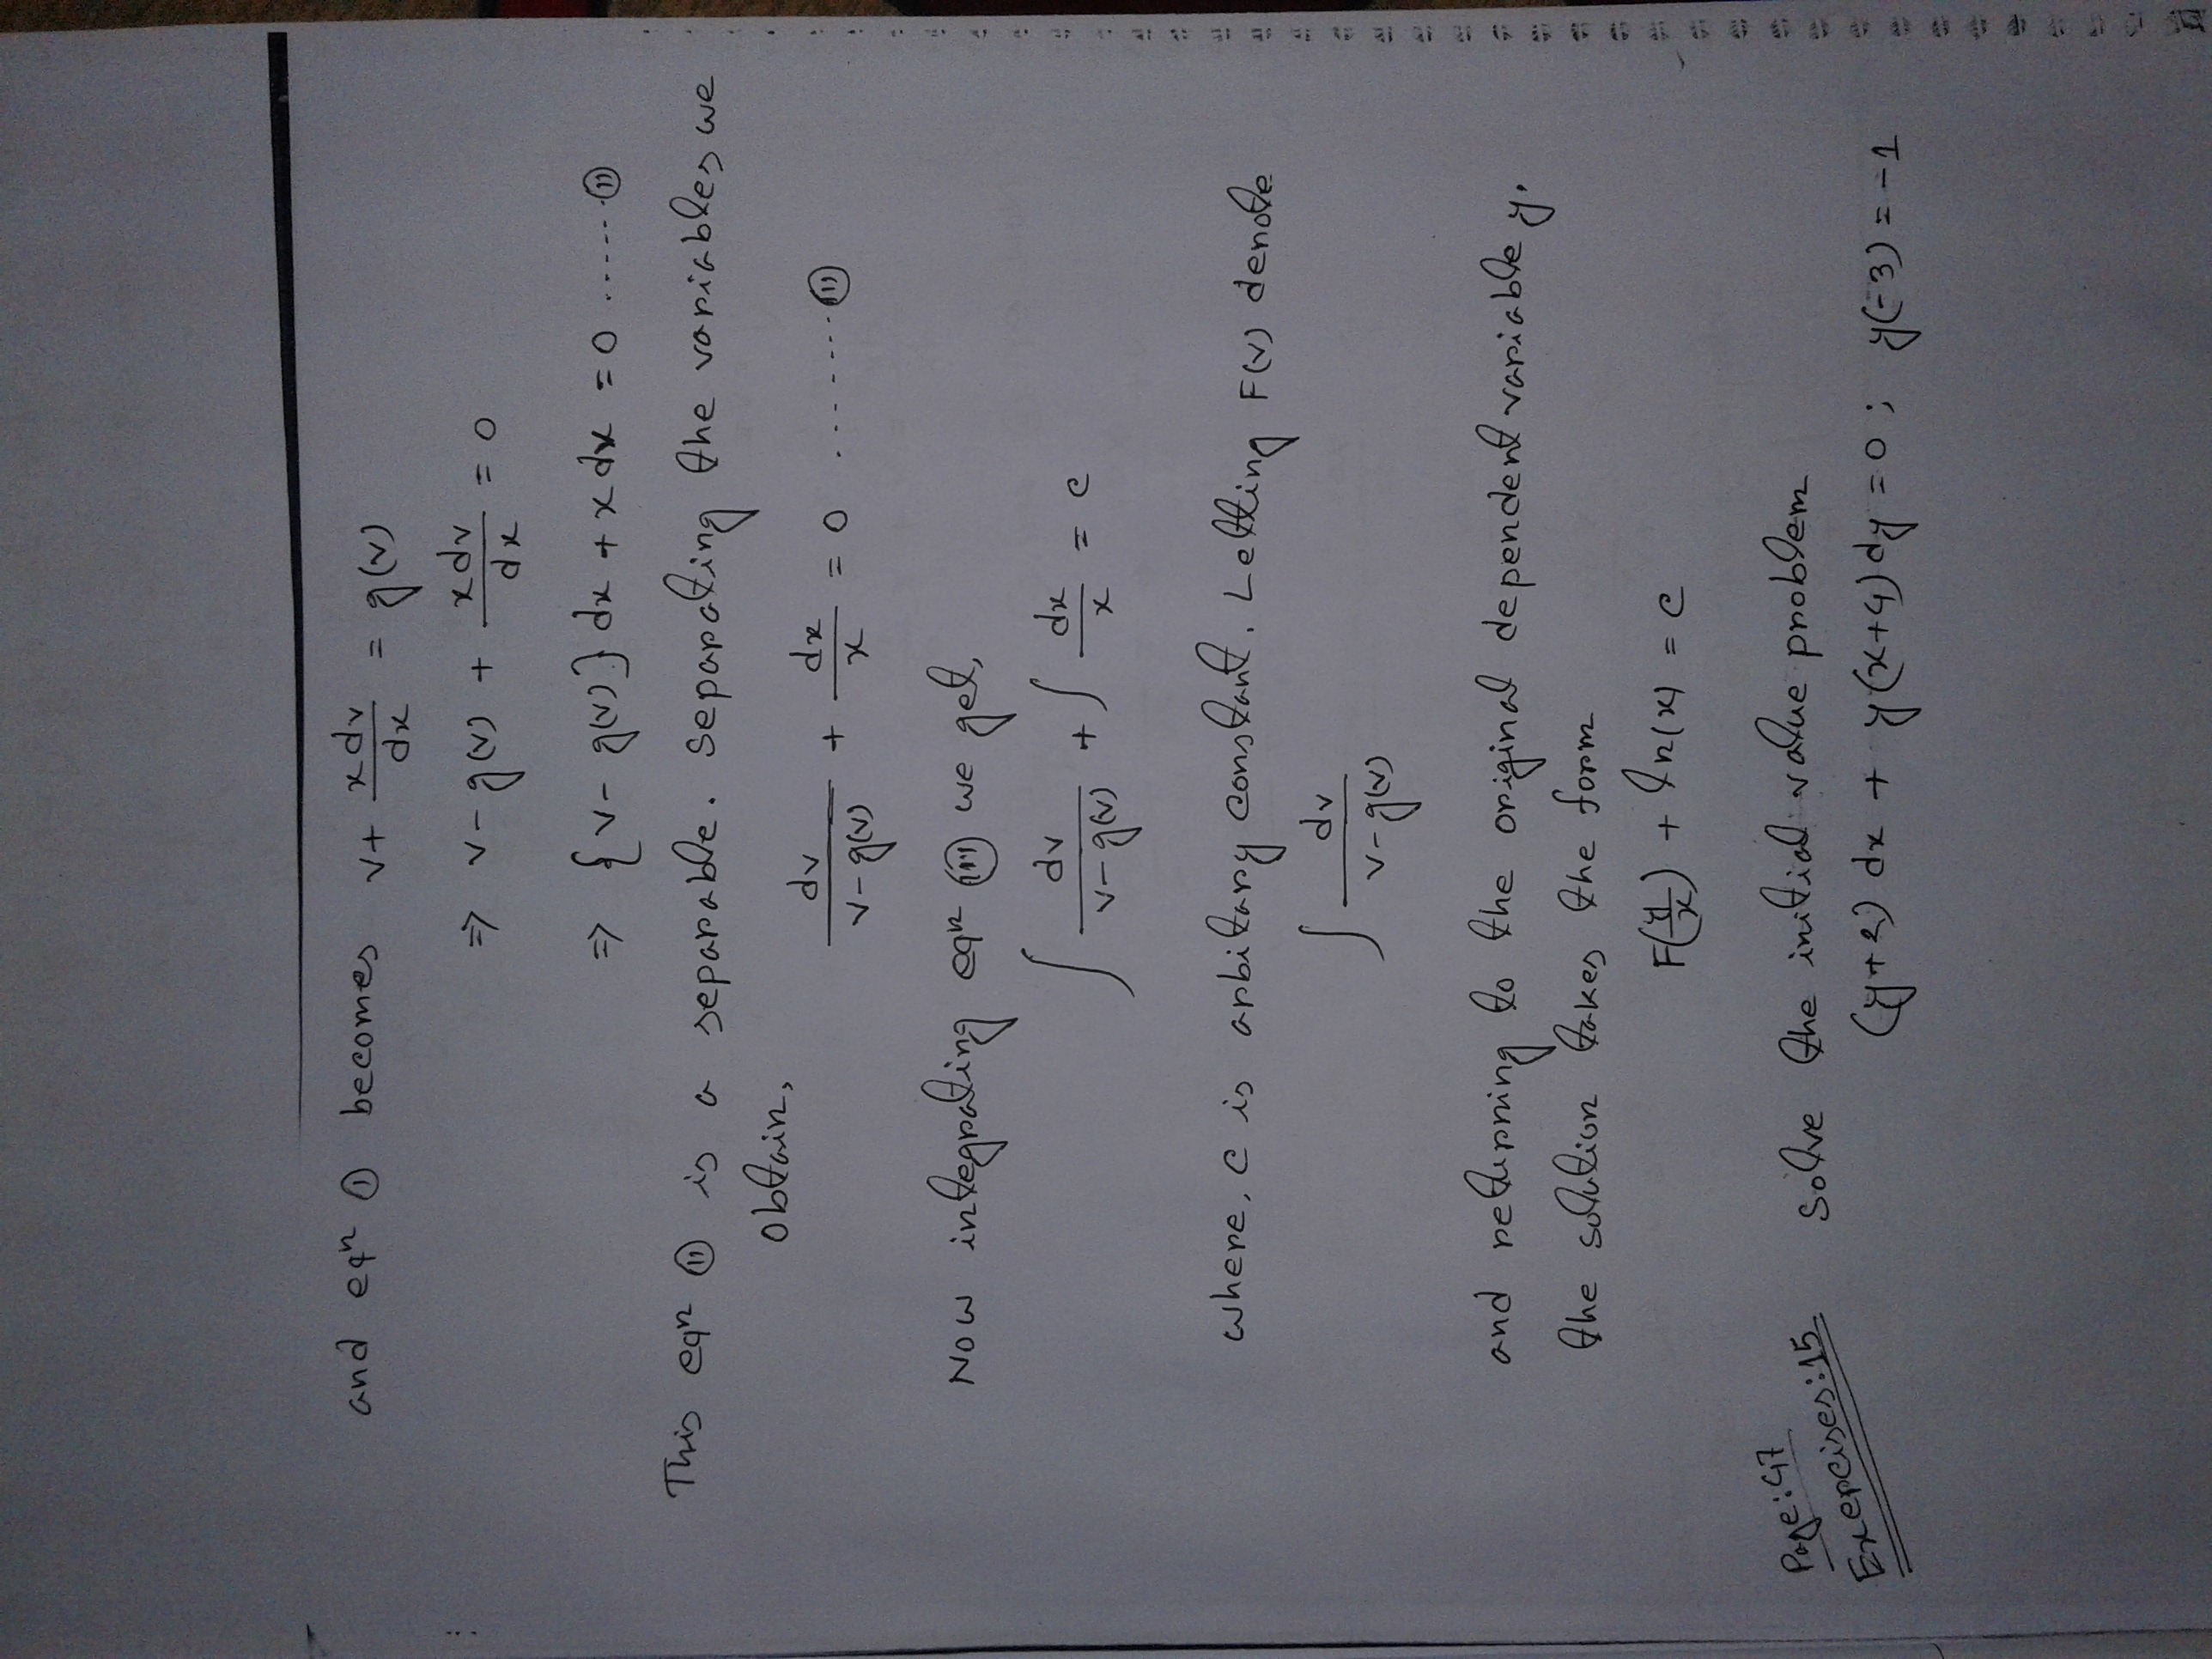 and eqn ① becomes v + x dv/dx = g(v)
⇒ v - g(v) + x dv/dx = 0
⇒ {v - g(v)} dx + x dv = 0 ...... ⑪
This eqn ⑪ is a separable. Separating the variables we
obtain,
dv/(v - g(v)) + dx/x = 0 ....... (111)
Now integrating eqn (111) we get,
∫ dv/(v - g(v)) + ∫ dx/x = c
where, c is arbitary constant. Letting F(v) denote
∫ dv/(v - g(v))
and returning to the original dependent variable y.
the solution takes the form
F(y/x) + ln(x) = c
Page: 47
Exercises: 15
Solve the initial value problem
(y+2) dx + y(x+4) dy = 0 ; y(-3) = -1